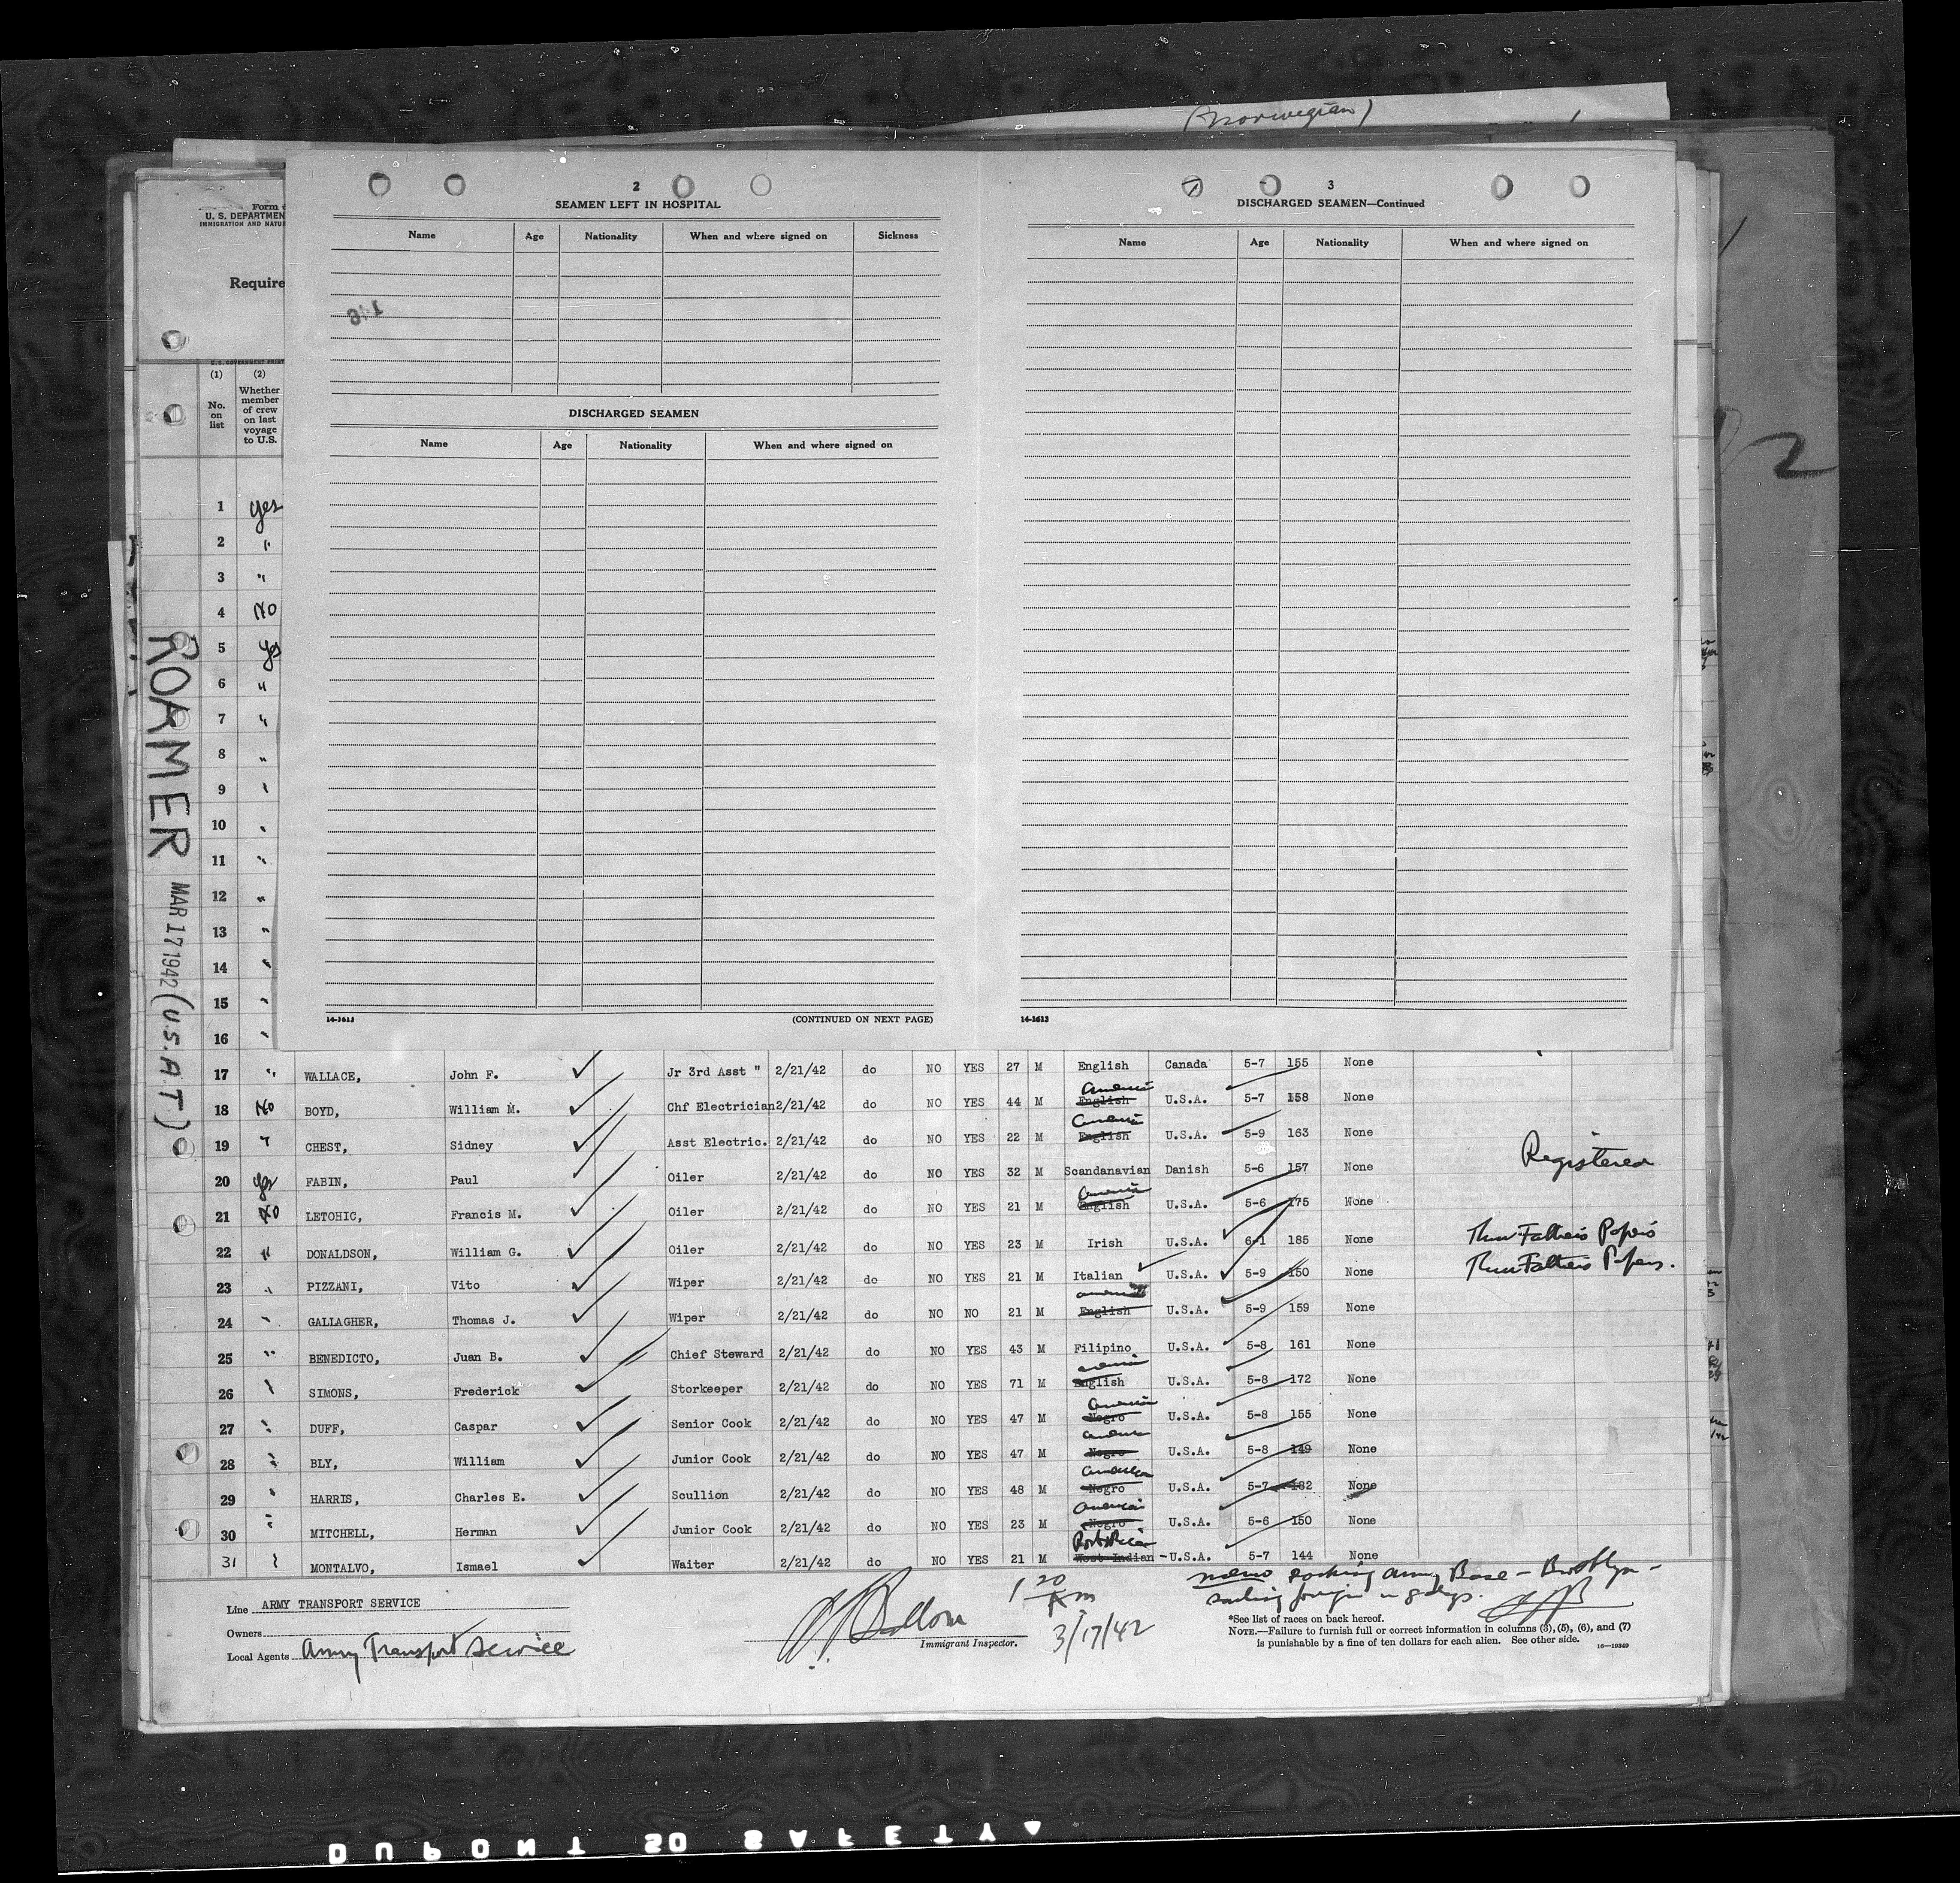 (Norwegian)
2
SEAMEN LEFT IN HOSPITAL
Name Age Nationality When and where signed on Sickness
DISCHARGED SEAMEN
Name Age Nationality When and where signed on
14-1613 (CONTINUED ON NEXT PAGE)
3
DISCHARGED SEAMEN—Continued
Name Age Nationality When and where signed on
14-1613
Form
U. S. DEPARTMEN
IMMIGRATION AND NATU
Require
(1) (2)
No. on list
Whether member of crew on last voyage to U.S.
1 Yes
2 "
3 "
4 No
5 Yes
6 "
7 "
8 "
9 "
10 "
11 "
12 "
13 "
14 "
15 "
16 "
ROAMER MAR 17 1942 (U.S.A.T)
17 " WALLACE, John F. Jr 3rd Asst " 2/21/42 do NO YES 27 M English Canada 5-7 155 None
18 No BOYD, William M. Chf Electrician 2/21/42 do NO YES 44 M English American U.S.A. 5-7 158 None
19 " CHEST, Sidney Asst Electric. 2/21/42 do NO YES 22 M English American U.S.A. 5-9 163 None
20 Yes FABIN, Paul Oiler 2/21/42 do NO YES 32 M Scandanavian Danish 5-6 157 None Registered
21 No LETOHIC, Francis M. Oiler 2/21/42 do NO YES 21 M English American U.S.A. 5-6 175 None
22 " DONALDSON, William G. Oiler 2/21/42 do NO YES 23 M Irish U.S.A. 6-1 185 None Thru Father's Papers
23 " PIZZANI, Vito Wiper 2/21/42 do NO YES 21 M Italian U.S.A. 5-9 150 None Thru Father's Papers.
24 " GALLAGHER, Thomas J. Wiper 2/21/42 do NO NO 21 M English American U.S.A. 5-9 159 None
25 " BENEDICTO, Juan B. Chief Steward 2/21/42 do NO YES 43 M Filipino U.S.A. 5-8 161 None
26 " SIMONS, Frederick Storkeeper 2/21/42 do NO YES 71 M English American U.S.A. 5-8 172 None
27 " DUFF, Caspar Senior Cook 2/21/42 do NO YES 47 M Negro American U.S.A. 5-8 155 None
28 " BLY, William Junior Cook 2/21/42 do NO YES 47 M Negro American U.S.A. 5-8 149 None
29 " HARRIS, Charles E. Scullion 2/21/42 do NO YES 48 M Negro American U.S.A. 5-7 182 None
30 " MITCHELL, Herman Junior Cook 2/21/42 do NO YES 23 M Negro American U.S.A. 5-6 150 None
31 " MONTALVO, Ismael Waiter 2/21/42 do NO YES 21 M West Indian U.S.A. 5-7 144 None
Line ARMY TRANSPORT SERVICE
Owners
Local Agents Army Transport Service
Immigrant Inspector.
1 20 Am
3/17/42
Army Base - Brooklyn -
*See list of races on back hereof.
NOTE.—Failure to furnish full or correct information in columns (3), (5), (6), and (7)
is punishable by a fine of ten dollars for each alien. See other side.
DUPONT SAFETY